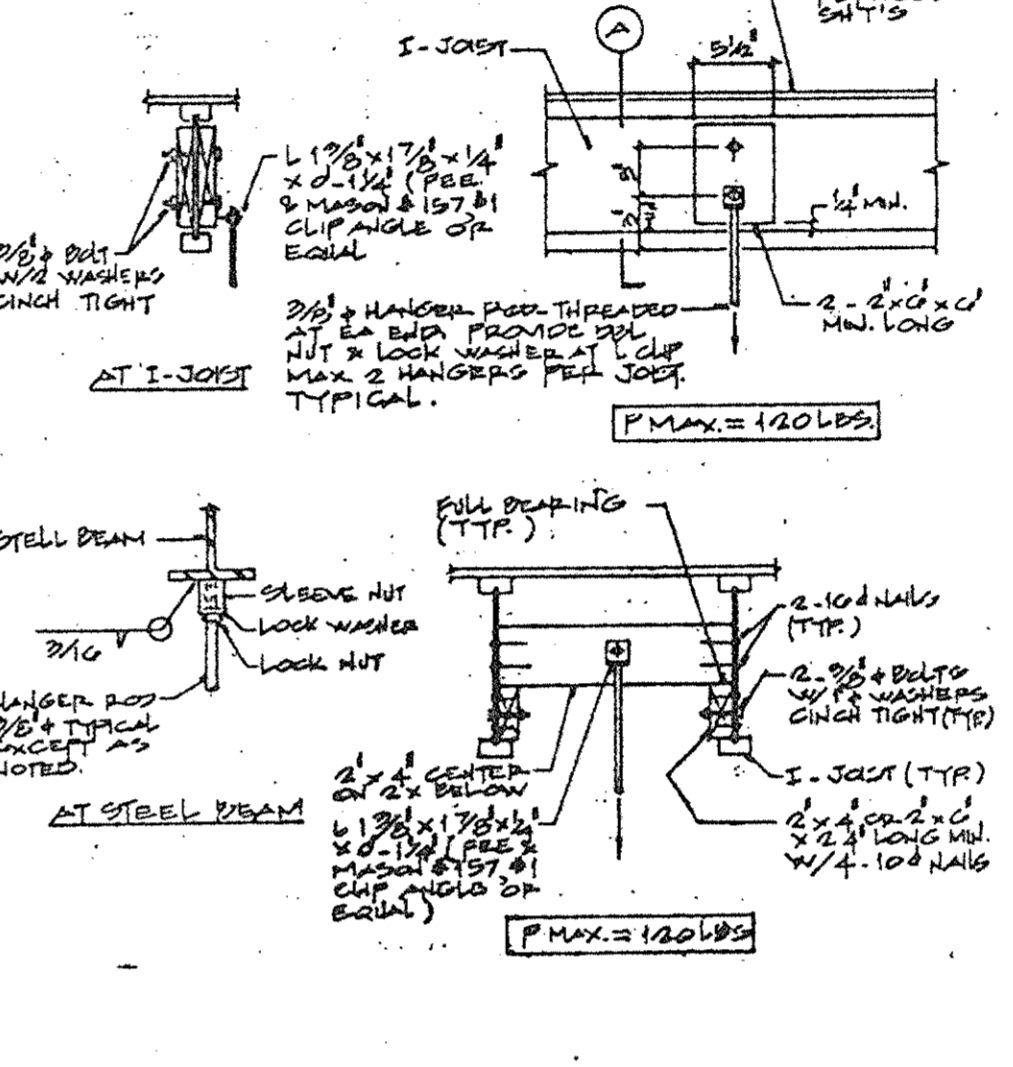 SHT'S
A
I-JOIST
5 1/2"
L 1 3/8" x 1 7/8" x 1/4"
x 0-1 1/4" (FEE
& MASON # 157 #1
CLIP ANGLE OR
EQUAL
3/8" ϕ BOLT
W/2 WASHERS
CINCH TIGHT
AT I-JOIST
1/4" MIN.
2 - 2" x 6" x 6"
MIN. LONG
3/8" ϕ HANGER ROD-THREADED
AT EA END. PROVIDE DBL
NUT & LOCK WASHER AT L CLIP
MAX. 2 HANGERS PER JOIST.
TYPICAL.
P MAX. = 120 LBS.
STELL BEAM
SLEEVE NUT
LOCK WASHER
LOCK NUT
3/16
HANGER ROD
3/8" ϕ TYPICAL
EXCEPT AS
NOTED.
AT STEEL BEAM
FULL BEARING
(TYP.)
2-16d NAILS
(TYP.)
2-3/8" ϕ BOLTS
W/1" ϕ WASHERS
CINCH TIGHT (TYP)
I-JOIST (TYP.)
2" x 4" OR 2" x 6"
x 24" LONG MIN.
W/4-10d NAILS
2" x 4" CENTER
ON 2x BELOW
L 1 3/8" x 1 7/8" x 1/4"
x 0-1 1/4" (FEE &
MASON # 157 #1
CLIP ANGLE OR
EQUAL)
P MAX. = 120 LBS